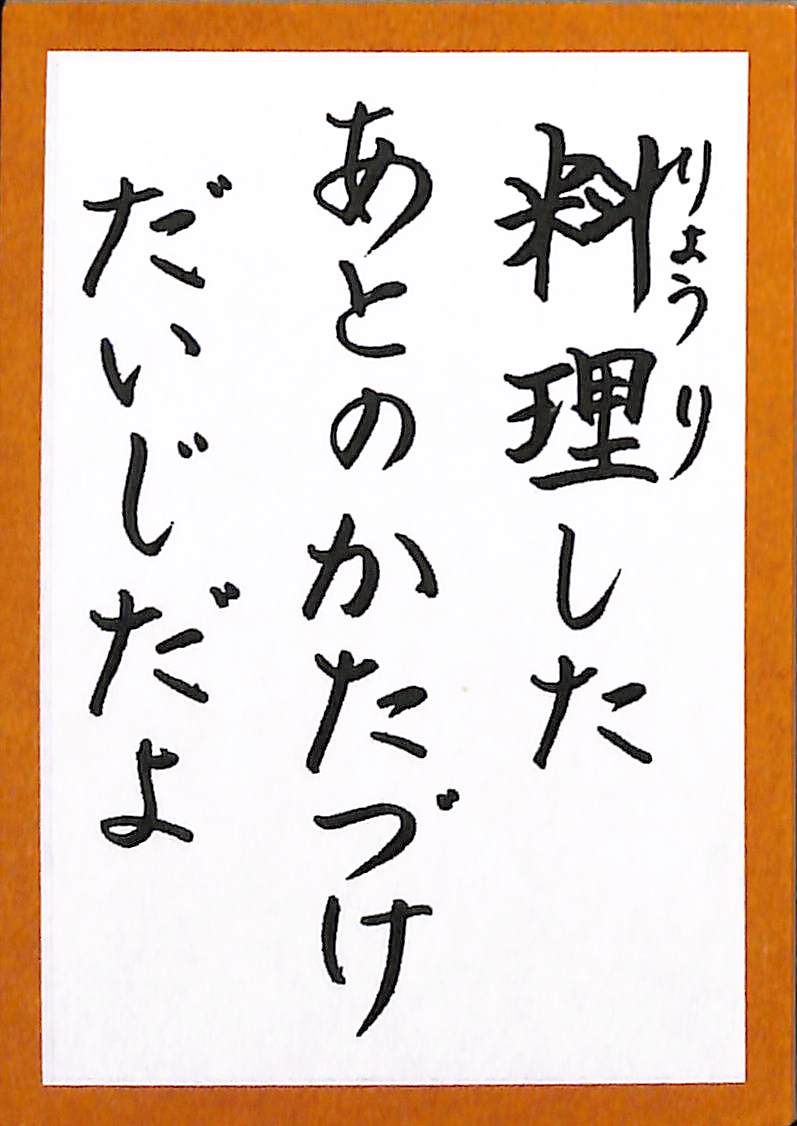 料理した
りょうり
あとのかたづけ
だいじだよ